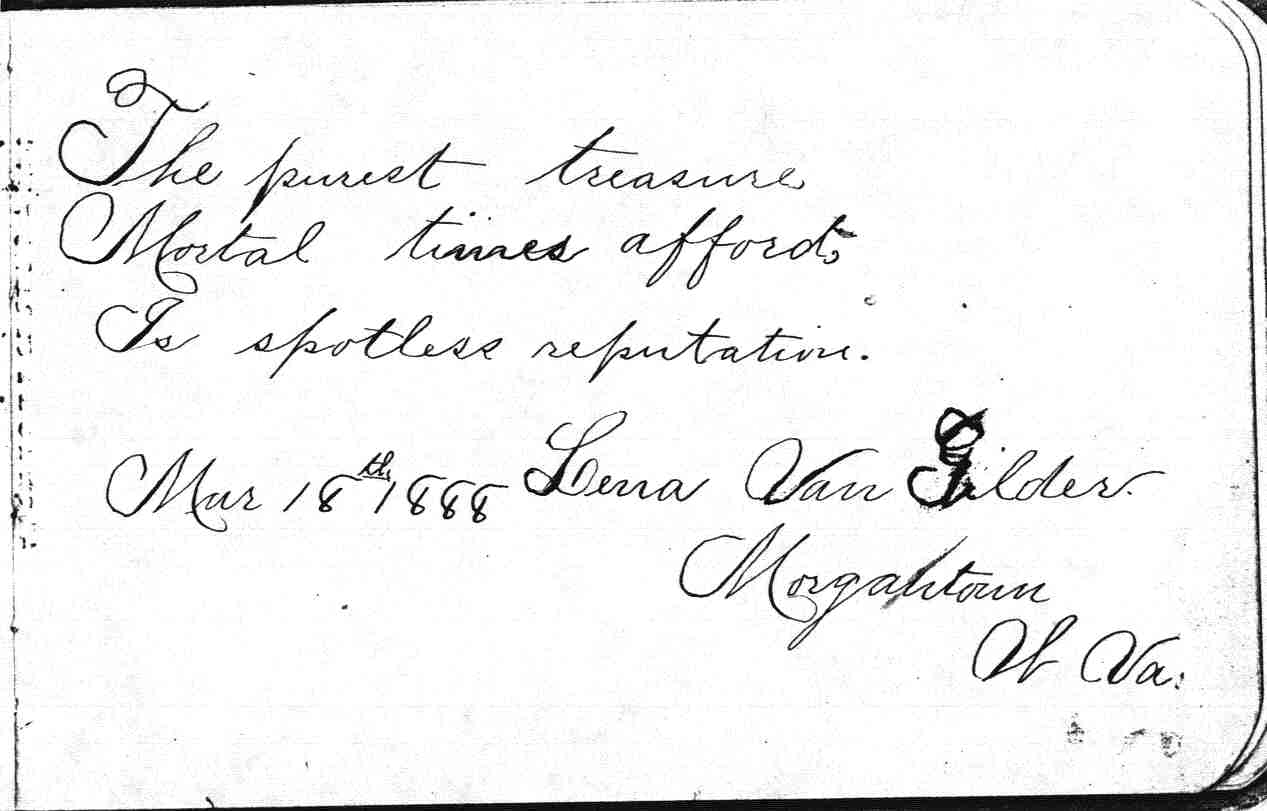 The purest treasure
Mortal times afford,
Is spotless reputation.
Mar 18th 1888 Lena Van Gilder.
Morgantown
W Va.